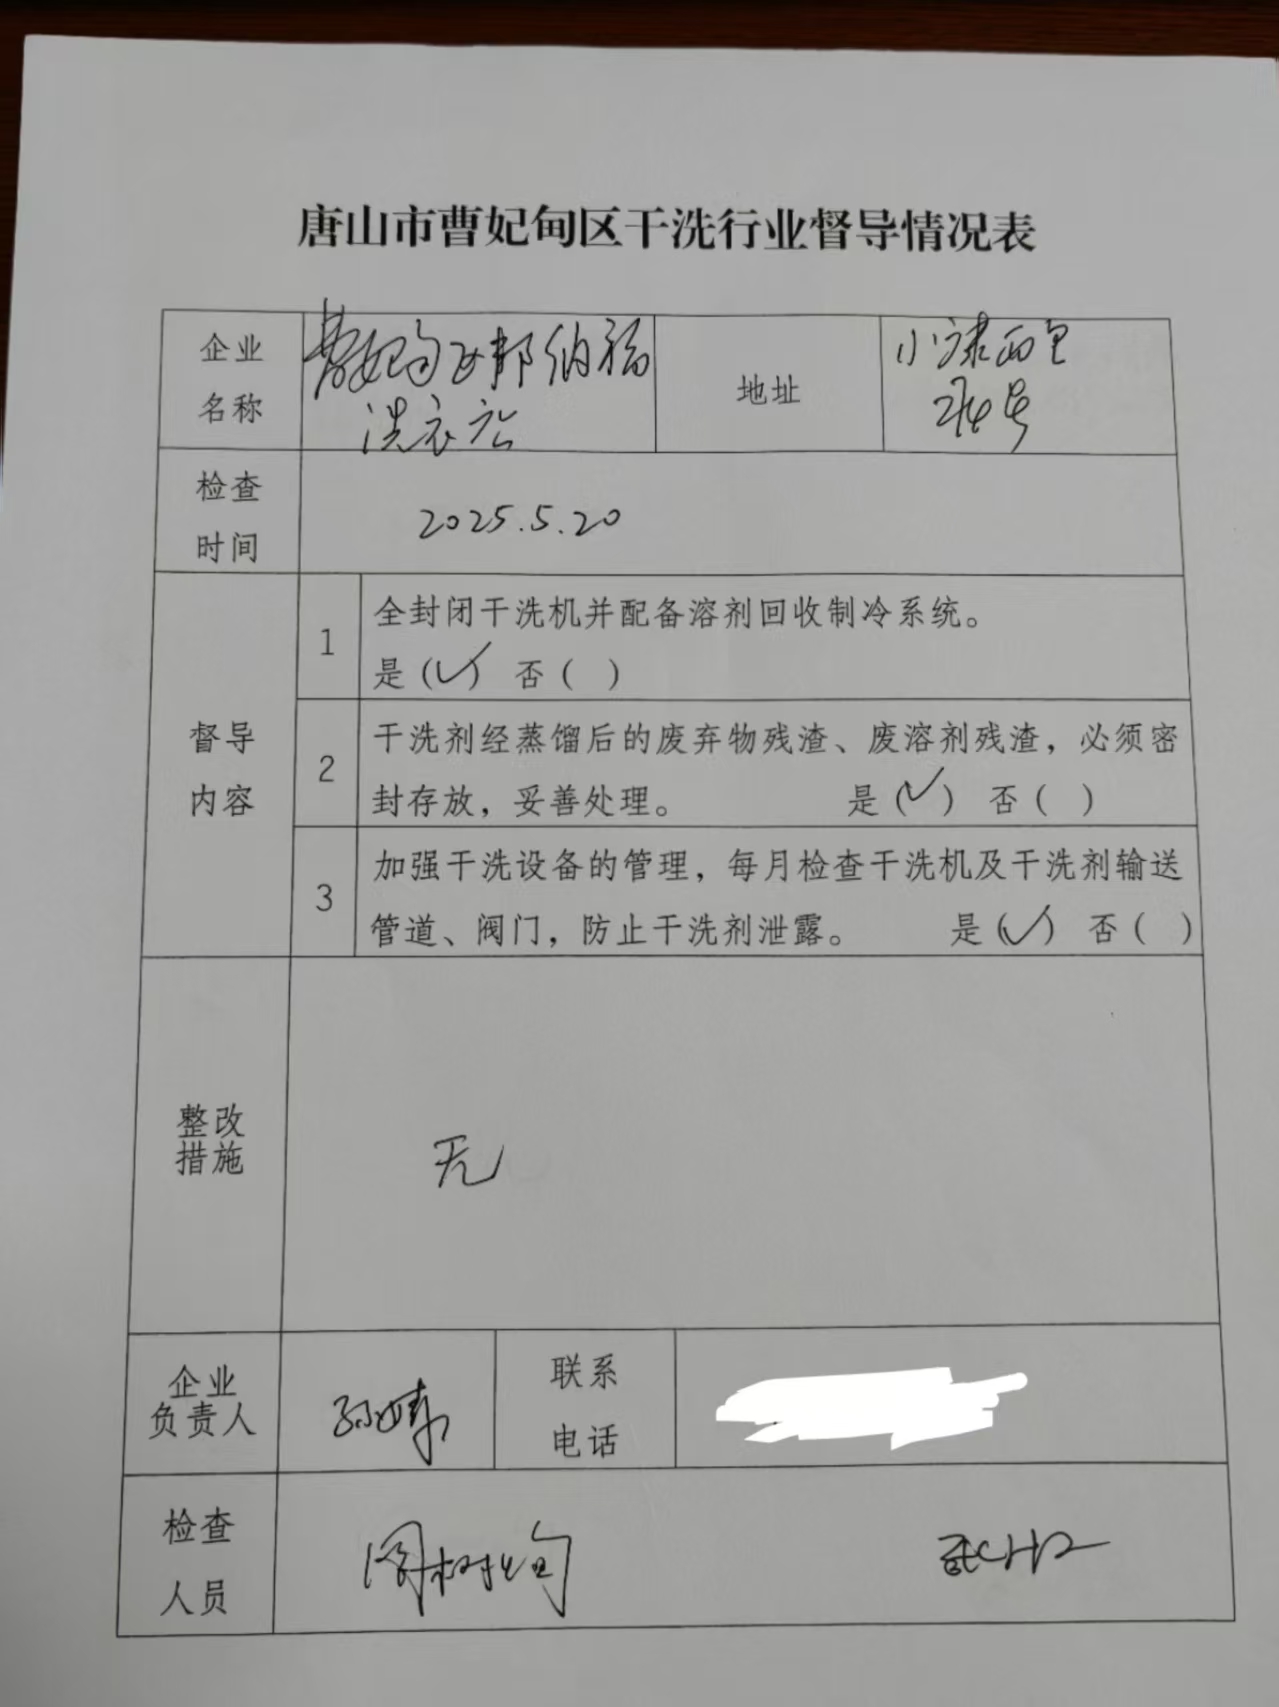 唐山市曹妃甸区干洗行业督导情况表
企业
名称
曹妃甸区邦纳福
洗衣店
地址
小
号
检查
时间
2025.5.20
督导
内容
1
全封闭干洗机并配备溶剂回收制冷系统。
是(✓) 否( )
2
干洗剂经蒸馏后的废弃物残渣、废溶剂残渣，必须密
封存放，妥善处理。 是(✓) 否( )
3
加强干洗设备的管理，每月检查干洗机及干洗剂输送
管道、阀门，防止干洗剂泄露。 是(✓) 否( )
整改
措施
无
企业
负责人
联系
电话
检查
人员